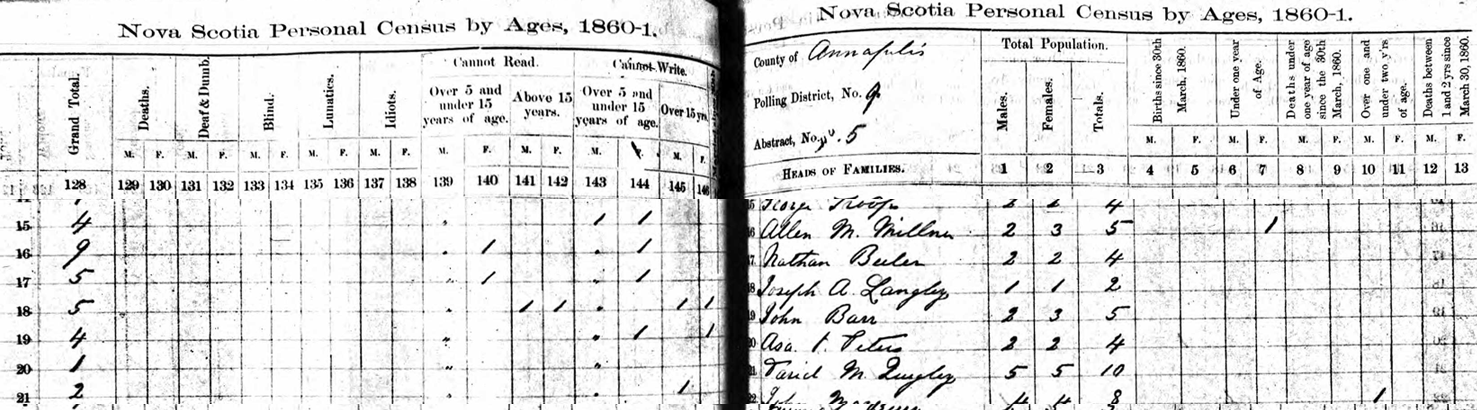 Nova Scotia Personal Census by Ages, 1860-1.
Grand Total.
Deaths.
Deaf & Dumb.
Blind.
Lunatics.
Idiots.
Cannot Read.
Cannot Write.
Over 5 and under 15 years of age.
Above 15 years.
Over 5 and under 15 years of age.
Over 15 yrs.
M. F. M. F. M. F. M. F. M. F. M. F. M. F. M. F. M. F.
128 129 130 131 132 133 134 135 136 137 138 139 140 141 142 143 144 145 146
15 4 1 1
16 9 1 1
17 5 1 1
18 5 1 1 1 1
19 4 1 1
20 1
21 2 1
Nova Scotia Personal Census by Ages, 1860-1.
County of Annapolis
Polling District, No. 9
Abstract, No. 5
Total Population.
Males.
Females.
Totals.
Births since 30th March, 1860.
Under one year of Age.
Deaths under one year of age since the 30th March, 1860.
Over one and under two yrs of age.
Deaths between 1 and 2 yrs since March 30, 1860.
M. F. M. F. M. F. M. F. M. F.
Heads of Families. 1 2 3 4 5 6 7 8 9 10 11 12 13
15 George Troop 2 2 4
16 Allen M. Millner 2 3 5 1
17 Nathan Beeler 2 2 4
18 Joseph A. Langley 1 1 2
19 John Barr 2 3 5
20 Asa Peters 2 2 4
21 David M Quigley 5 5 10
22 John 4 4 8 1